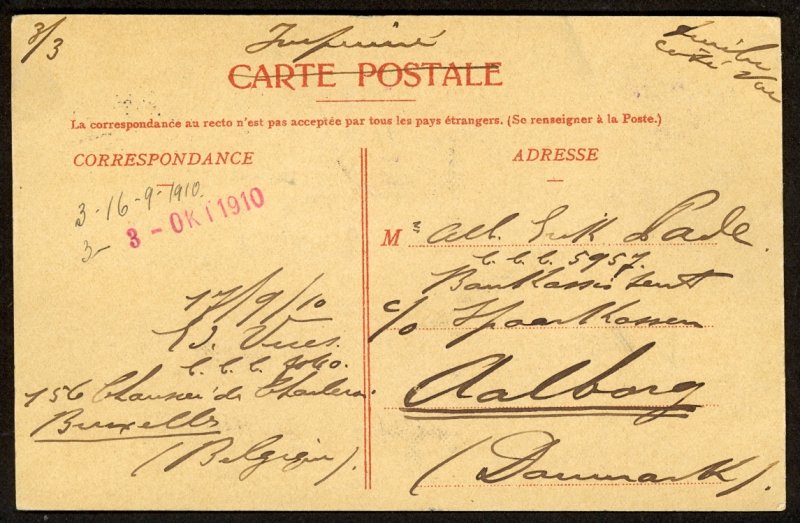 3/3
Imprimé
Timbre
côté vue
CARTE POSTALE
La correspondance au recto n'est pas acceptée par tous les pays étrangers. (Se renseigner à la Poste.)
CORRESPONDANCE
ADRESSE
3-16-9-1910.
3-
3-OKT 1910
M
Erik Lade.
c. c. c. 5957.
c/o Sparkassen
Aalborg
(Danmark).
17/9/10
156 Chaussée de Charleroi
Bruxelles
(Belgique).